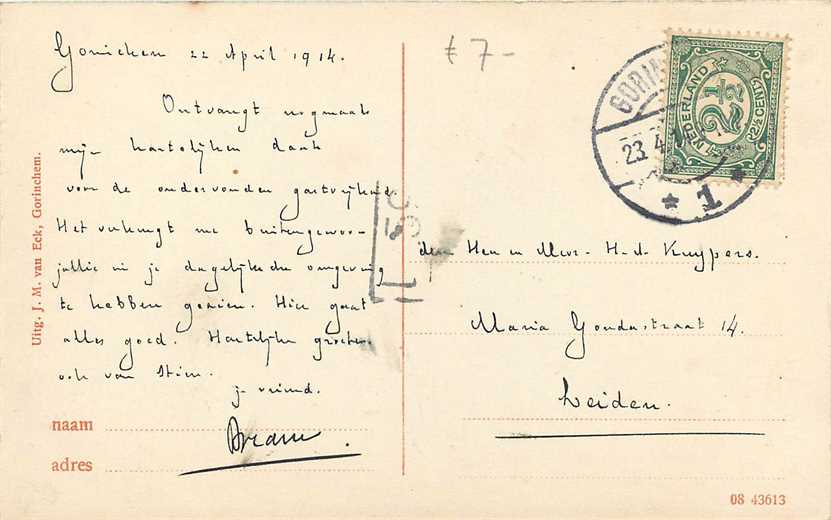 Gorinchem 22 April 1914.
Ontvangt nogmaals
mijn hartelijken dank
voor de ondervonden gastvrijheid.
Het verheugt me buitengewoon
jullie in je dagelijksche omgeving
te hebben gezien. Hier gaat
alles goed. Hartelijke groeten
ook van Stien.
je vriend.
Bram.
naam
adres
Uitg. J. M. van Eck, Gorinchem.
€ 7-
GORIN
23. 4
1
NEDERLAND
2½
2½ CENT
den Heer en Mevr. H. d. Kuypers.
Maria Gondastraat 14.
Leiden.
08 43613